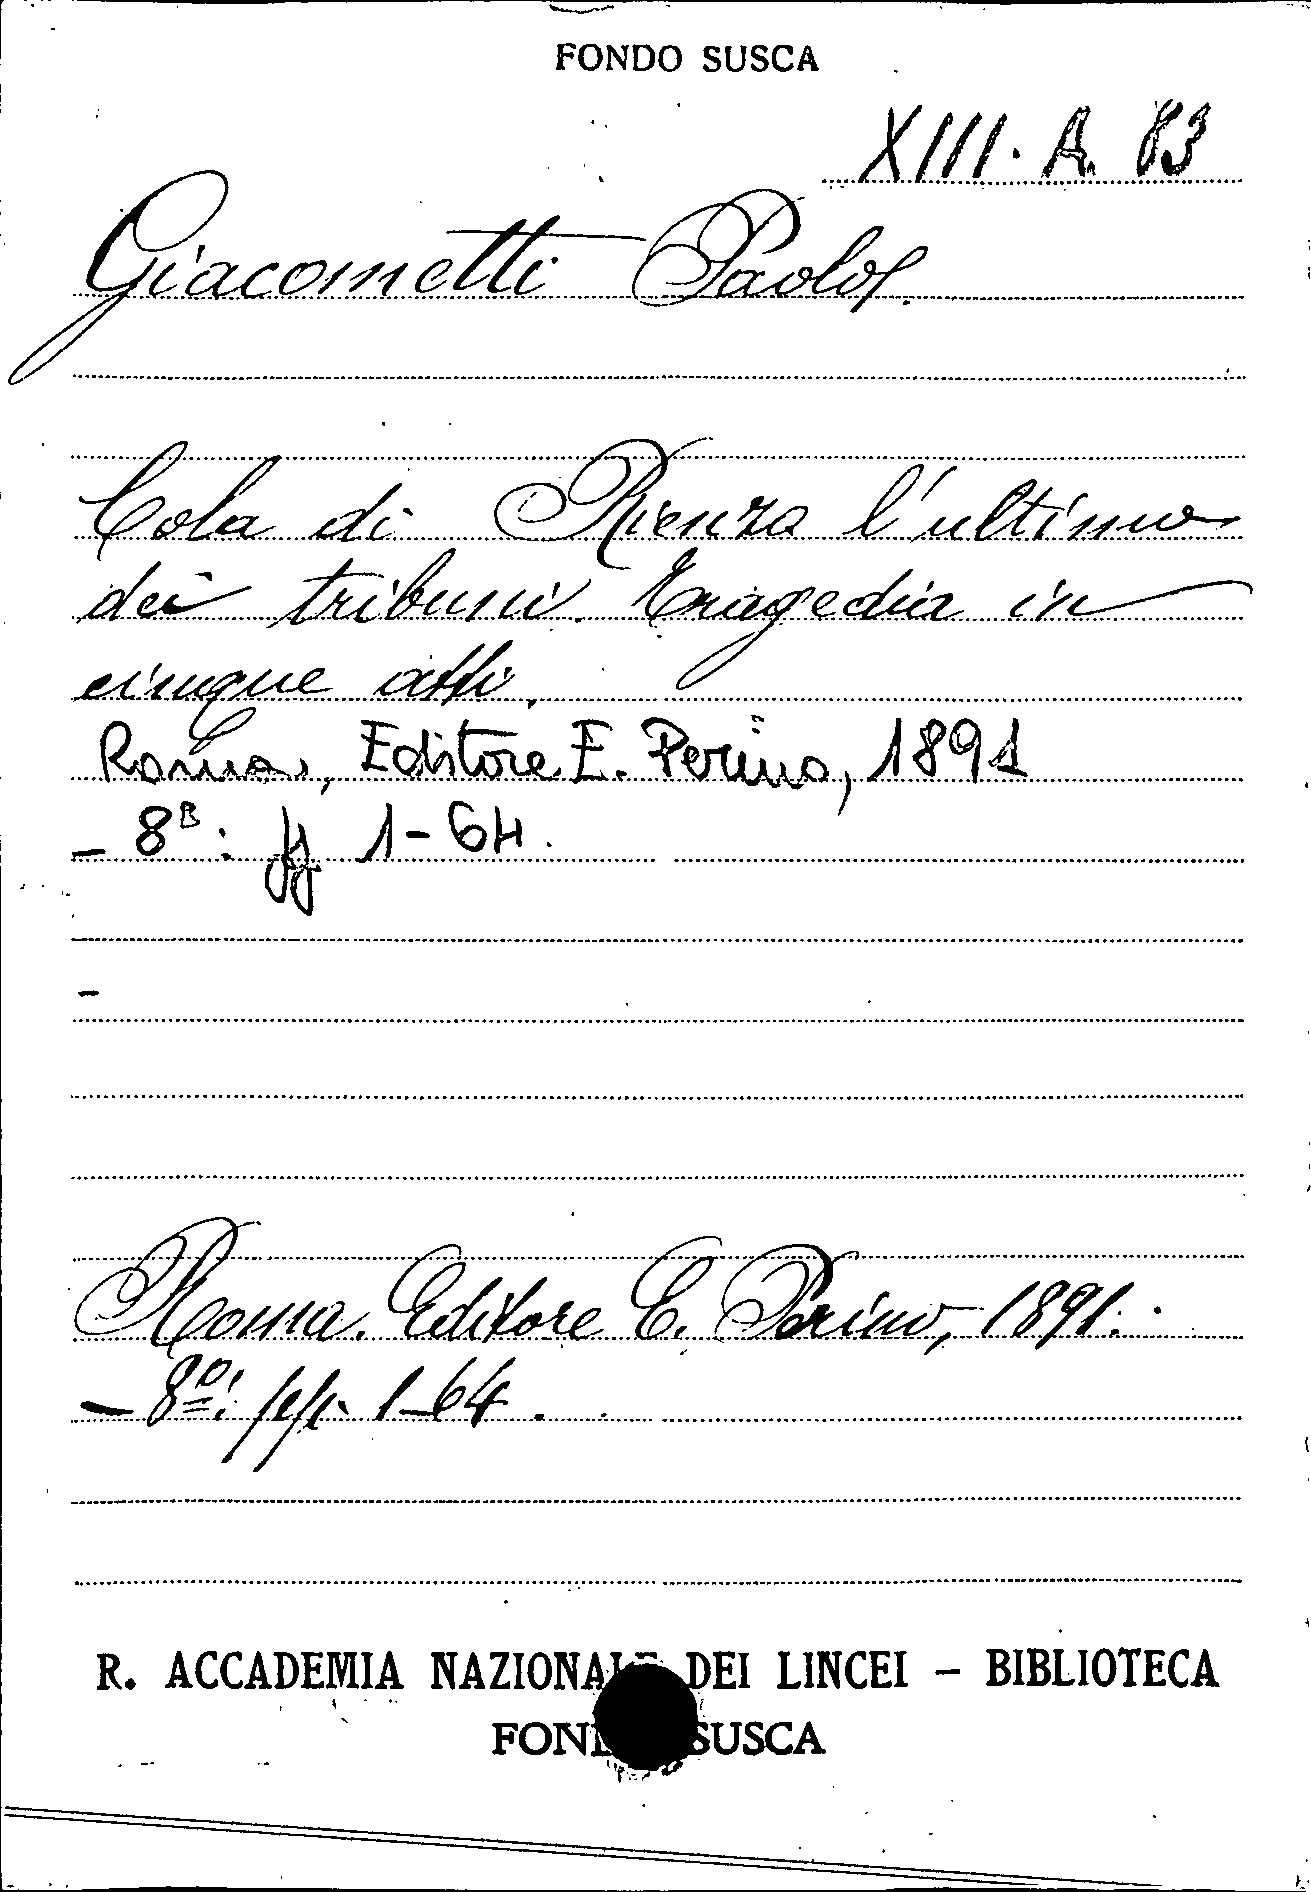 FONDO SUSCA
XIII. A. 83
Giacometti Paolo.
Cola di Rienzo l'ultimo
dei tribuni. Tragedia in
cinque atti.
Roma, Editore E. Perino, 1891
– 8º: pp 1-64.
Roma. Editore E. Perino, 1891.
– 8º: pp. 1-64.
R. ACCADEMIA NAZIONALE DEI LINCEI – BIBLIOTECA
FONDO SUSCA